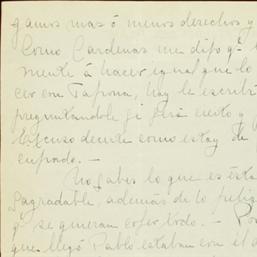 gamos mas ó menos derechos y
Como Cardenas me dijo q.
mente á hacer igual que lo
cer con Tapona, hoy le escribí
preguntandole si será cierto y
Escuso decirte como estoy de
cupado. —
No sabes lo que es ésta
sagradable, además de lo pelig
q. se quieran cojer todo. —
que llegó Pablo estaban con el